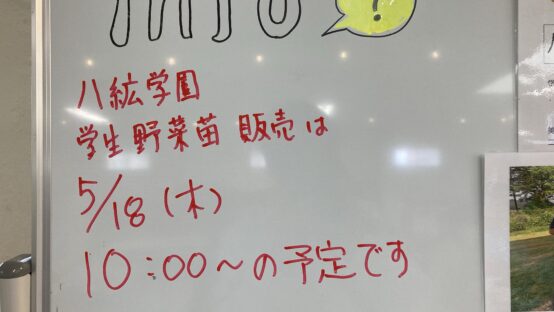 ?
八紘学園
学生野菜苗 販売は
5/18(木)
10:00〜の予定です